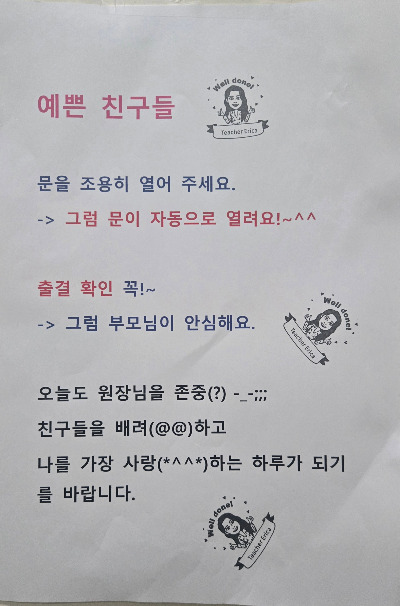 Well done!
예쁜 친구들
Teacher Erica
문을 조용히 열어 주세요.
-> 그럼 문이 자동으로 열려요!~^^
출결 확인 꼭!~
-> 그럼 부모님이 안심해요.
Well done!
Teacher Erica
오늘도 원장님을 존중(?) -_-;;;
친구들을 배려(@@)하고
나를 가장 사랑(*^^*)하는 하루가 되기
를 바랍니다.
Well done!
Teacher Erica